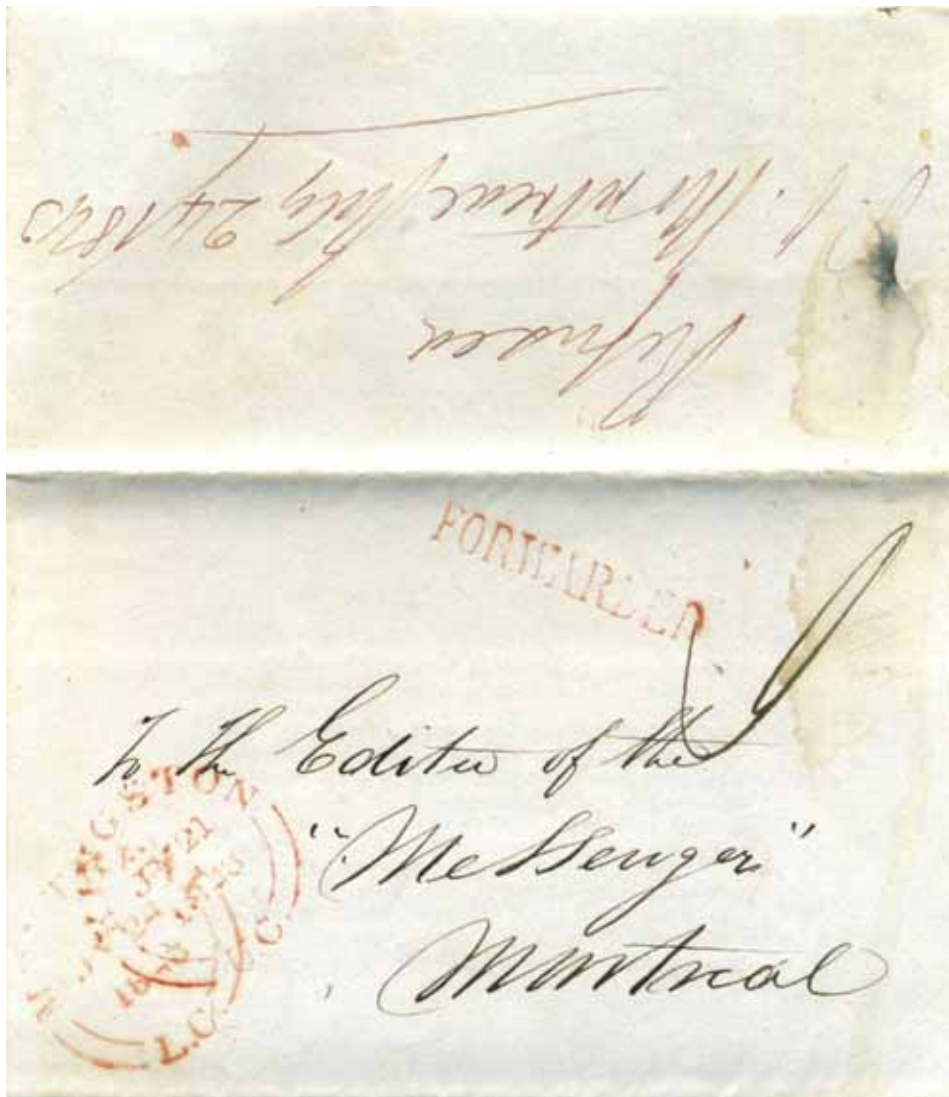 Refused
P. O. Montreal July 24 1843
FORWARDED
To the Editor of the
"Messenger"
Montreal
KINGSTON
JY 21
1843
L.C.